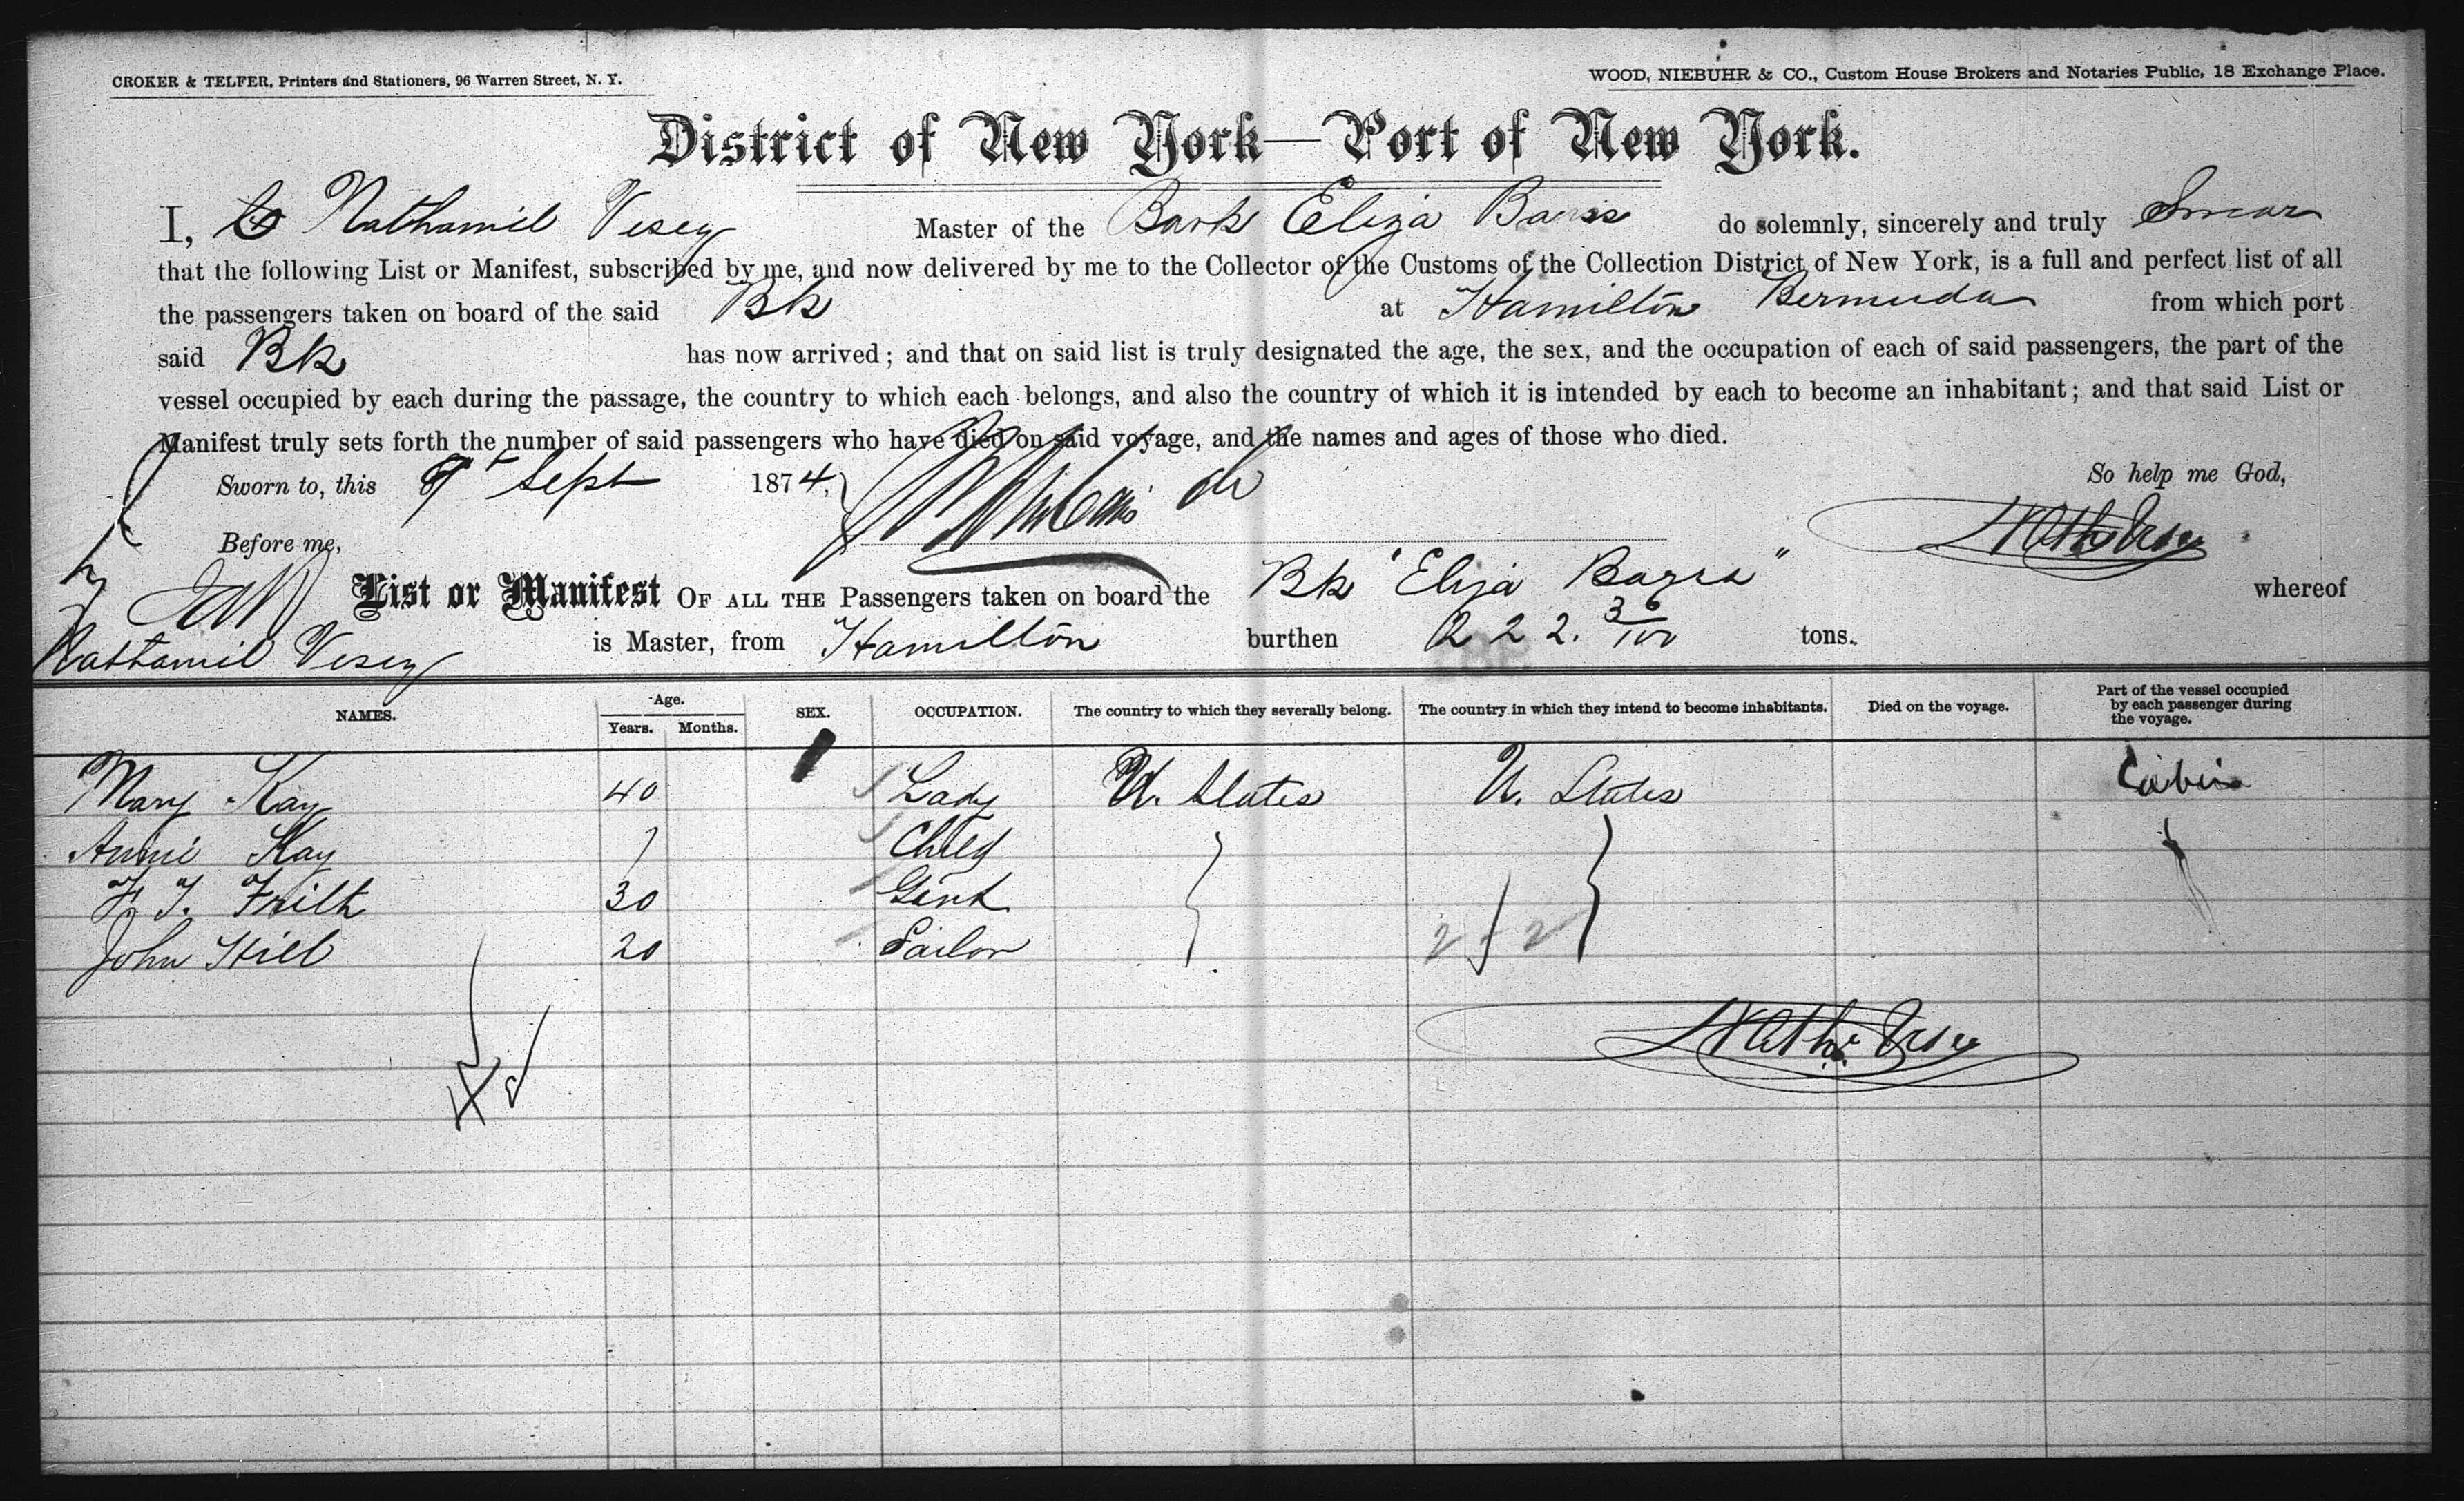 CROKER & TELFER, Printers and Stationers, 96 Warren Street, N. Y.
WOOD, NIEBUHR & CO., Custom House Brokers and Notaries Public, 18 Exchange Place.
District of New York—Port of New York.
I, Nathaniel Vesey Master of the Bark Eliza Barss do solemnly, sincerely and truly Swear
that the following List or Manifest, subscribed by me, and now delivered by me to the Collector of the Customs of the Collection District of New York, is a full and perfect list of all
the passengers taken on board of the said Bk at Hamilton Bermuda from which port
said Bk has now arrived; and that on said list is truly designated the age, the sex, and the occupation of each of said passengers, the part of the
vessel occupied by each during the passage, the country to which each belongs, and also the country of which it is intended by each to become an inhabitant; and that said List or
Manifest truly sets forth the number of said passengers who have died on said voyage, and the names and ages of those who died.
Sworn to, this Sept 1874, So help me God,
Before me, Nathl Vesey
List or Manifest OF ALL THE Passengers taken on board the Bk "Eliza Barss" whereof
Nathaniel Vesey is Master, from Hamilton burthen 222. 36/100 tons.
NAMES. Age. Years. Months. SEX. OCCUPATION. The country to which they severally belong. The country in which they intend to become inhabitants. Died on the voyage. Part of the vessel occupied by each passenger during the voyage.
Mary Kay 40 Lady U. States U. States Cabin
Annie Kay 7 Child
Frith 30 Gent
John Hill 20 Sailor
2 / 2
Nathl Vesey
4